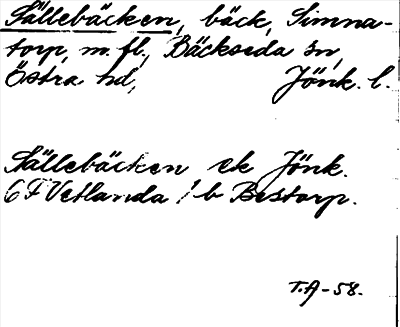 Sällebäcken, bäck, Simna-
torp, m. fl., Bäckseda sn,
Östra hd, Jönk. l.
Sällebäcken ek Jönk.
6 F Vetlanda 1 b Bestorp.
T.A-58.